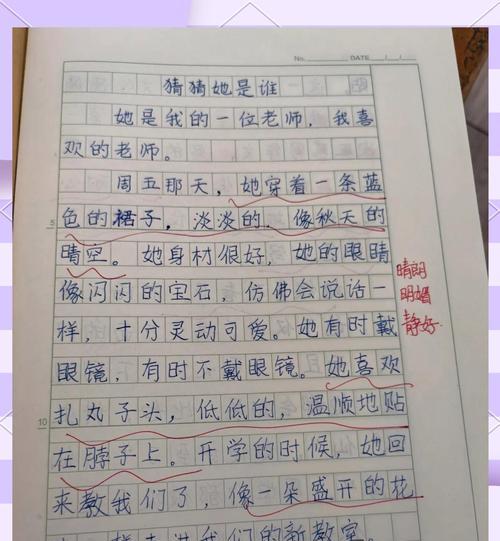 No. DATE / /
猜猜她是谁
她是我的一位老师,我喜
欢的老师。
周五那天,她穿着一条蓝
5
色的裙子,淡淡的,像秋天的
晴空。她身材很好,她的眼睛
晴朗
像闪闪的宝石,仿佛会说话一
明媚
样,十分灵动可爱。她有时戴
静好
眼镜,有时不戴眼镜。她喜欢
10
扎丸子头,低低的,温顺地贴
在脖子上。开学的时候,她回
来教我们了,像一朵盛开的花
一样走进我们的新教室